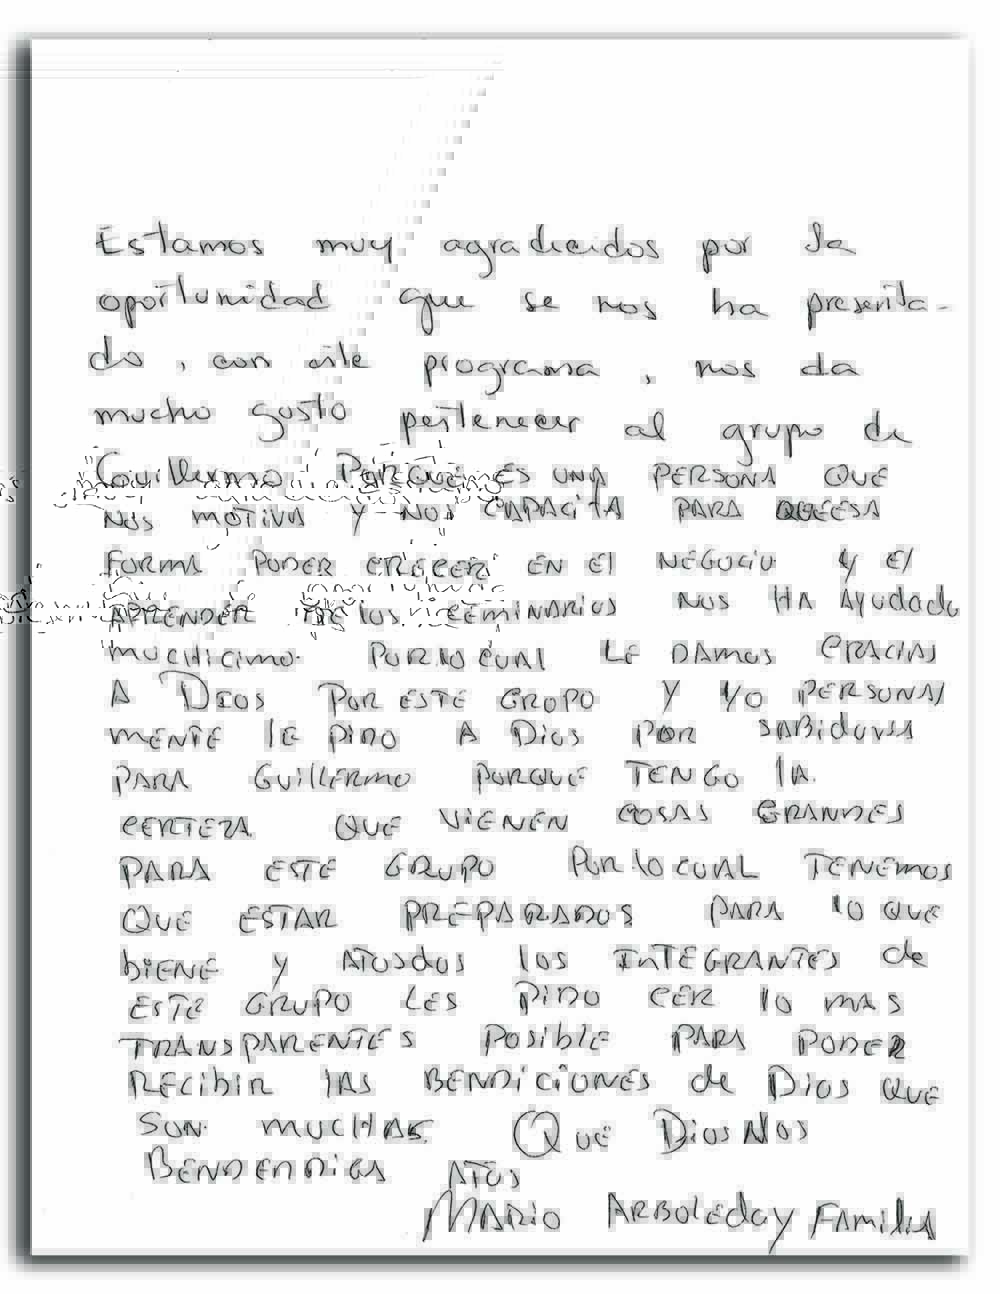 Estamos muy agradecidos por la
oportunidad que se nos ha presenta-
do, con este programa, nos da
mucho gusto pertenecer al grupo de
Guillermo PORQUE ES UNA PERSONA QUE
NOS MOTIVA Y NOS CAPACITA PARA QUEESA
FORMA PODER CRECER EN El NEGOCIO Y El
APRENDER DE LOS CEMINARIOS NOS HA AYudado
MUCHICIMO PORlO CUAl LE DAMOS GRACIAS
A DIOS POR ESTE GROPO Y YO PERSONAl
MENTE lE PIDO A DIOS POR SABIDURIA
PARA GUIllERMO PORQUE TENGO lA
CERTEZA QUE VIENEN COSAS GRANDES
PARA ESTE GRUPO PORlO CUAL TENEMOS
QUE ESTAR PREPARADOS PARA lO QUE
bIENE Y ATOSdOS lOS INTEGRANTES de
ESTE GRUPO LES PIDO CER lO MAS
TRANSPARENTES POSIblE PARA PODER
RECIbIR lAS BENDICIONES de DIOS QUE
SON MUCHAS QUE DIOS NOS
BENDENDIGA ATOS
MARIO ARBOLEDA Y FAMIlIA